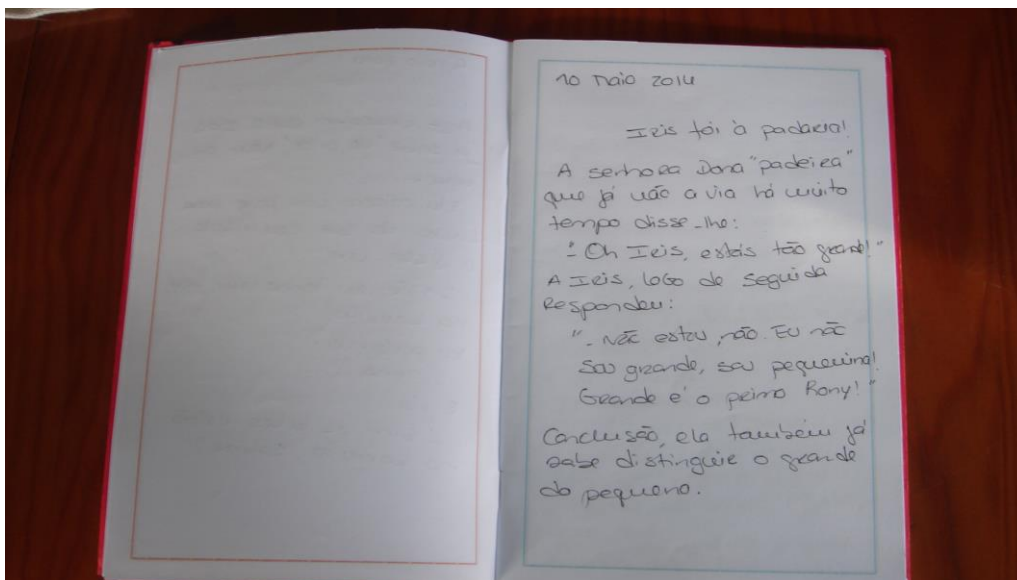 10 Maio 2014
Iris foi à padaria!
A senhora Dona "padeira"
que já não a via há muito
tempo disse-lhe:
"- Oh Iris, estás tão grande!"
A Iris, logo de seguida
respondeu:
"- Não estou, não. Eu não
sou grande, sou pequenina!
Grande é o primo Rony!"
Conclusão, ela também já
sabe distinguir o grande
do pequeno.